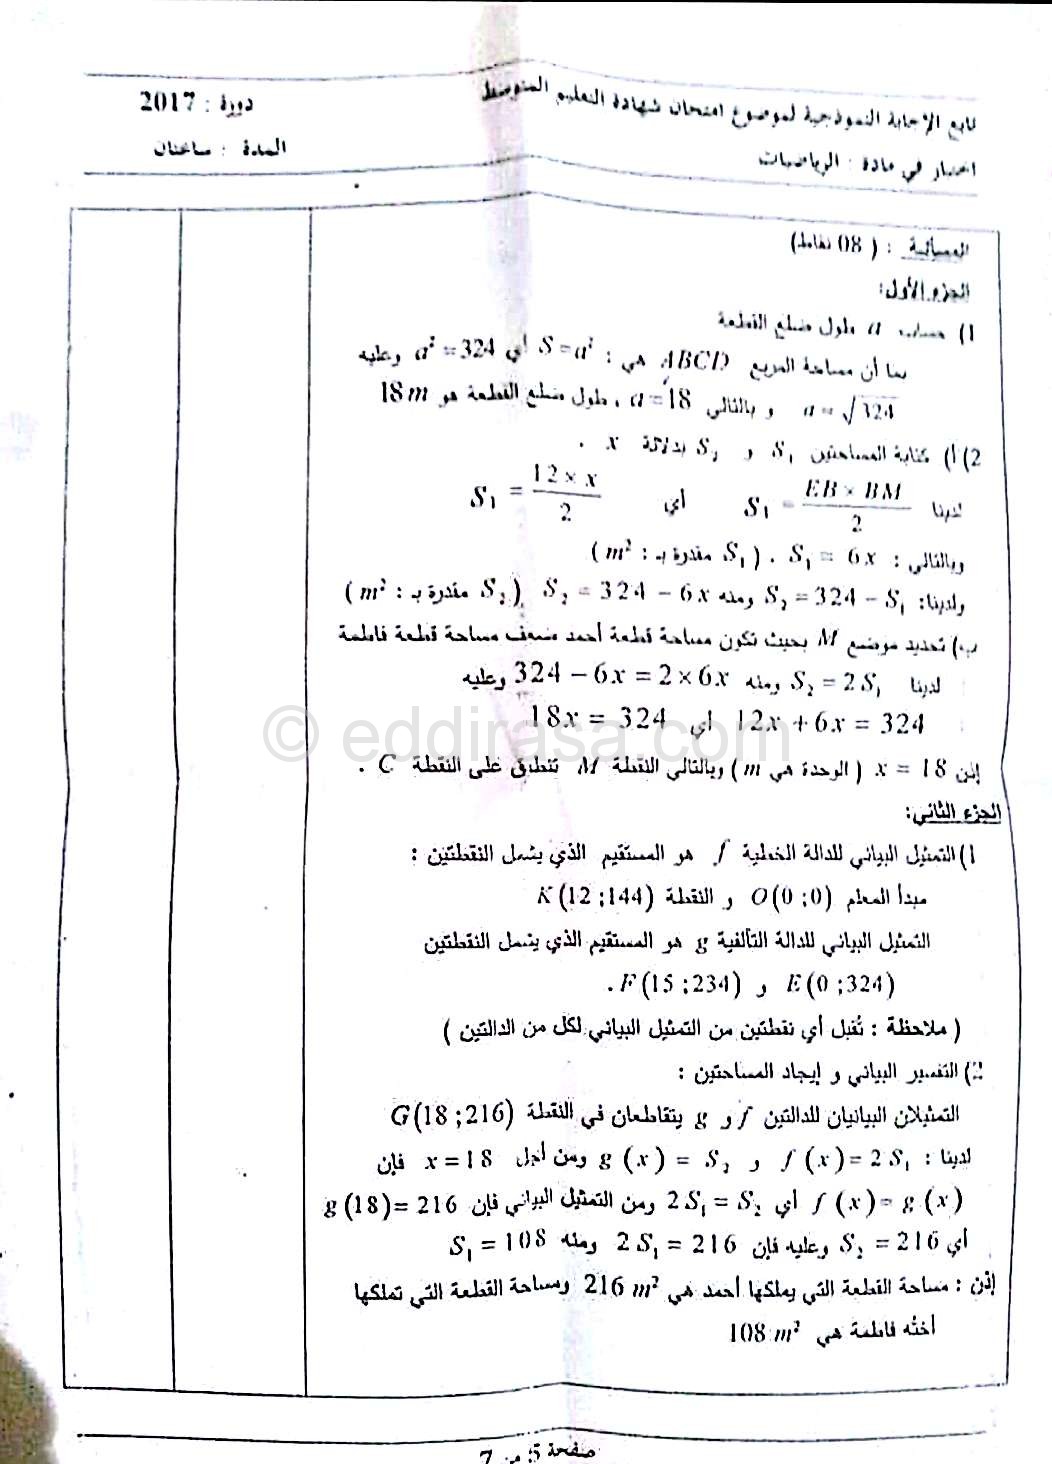 تابع الإجابة النموذجية لموضوع امتحان شهادة التعليم المتوسط دورة : 2017
اختبار في مادة : الرياضيات المدة : ساعتان
المسألة : ( 08 نقاط)
الجزء الأول:
1) حساب a طول ضلع القطعة
بما أن مساحة المربع ABCD هي : S = a² أي a² = 324 وعليه
a = √324 و بالتالي a = 18 ، طول ضلع القطعة هو 18 m
2) أ) كتابة المساحتين S₁ و S₂ بدلالة x .
لدينا S₁ = (EB × BM)/2 أي S₁ = (12 × x)/2
وبالتالي : S₁ = 6x . ( S₁ مقدرة بـ : m² )
ولدينا: S₂ = 324 − S₁ ومنه S₂ = 324 − 6x ( S₂ مقدرة بـ : m² )
ب) تحديد موضع M بحيث تكون مساحة قطعة أحمد ضعف مساحة قطعة فاطمة
لدينا S₂ = 2S₁ ومنه 324 − 6x = 2×6x وعليه
12x + 6x = 324 أي 18x = 324
© eddirasa.com
إذن x = 18 ( الوحدة هي m ) وبالتالي النقطة M تنطبق على النقطة C .
الجزء الثاني:
1) التمثيل البياني للدالة الخطية f هو المستقيم الذي يشمل النقطتين :
مبدأ المعلم O(0 ;0) و النقطة K(12 ;144)
التمثيل البياني للدالة التآلفية g هو المستقيم الذي يشمل النقطتين
E(0 ;324) و F(15 ;234) .
( ملاحظة : تُقبل أي نقطتين من التمثيل البياني لكل من الدالتين )
2) التفسير البياني و إيجاد المساحتين :
التمثيلان البيانيان للدالتين f و g يتقاطعان في النقطة G(18 ;216)
لدينا : f(x) = 2S₁ و g(x) = S₂ ومن أجل x = 18 فإن
f(x) = g(x) أي 2S₁ = S₂ ومن التمثيل البياني فإن g(18) = 216
أي S₂ = 216 وعليه فإن 2S₁ = 216 ومنه S₁ = 108
إذن : مساحة القطعة التي يملكها أحمد هي 216 m² ومساحة القطعة التي تملكها
أخته فاطمة هي 108 m²
صفحة 5 من 7